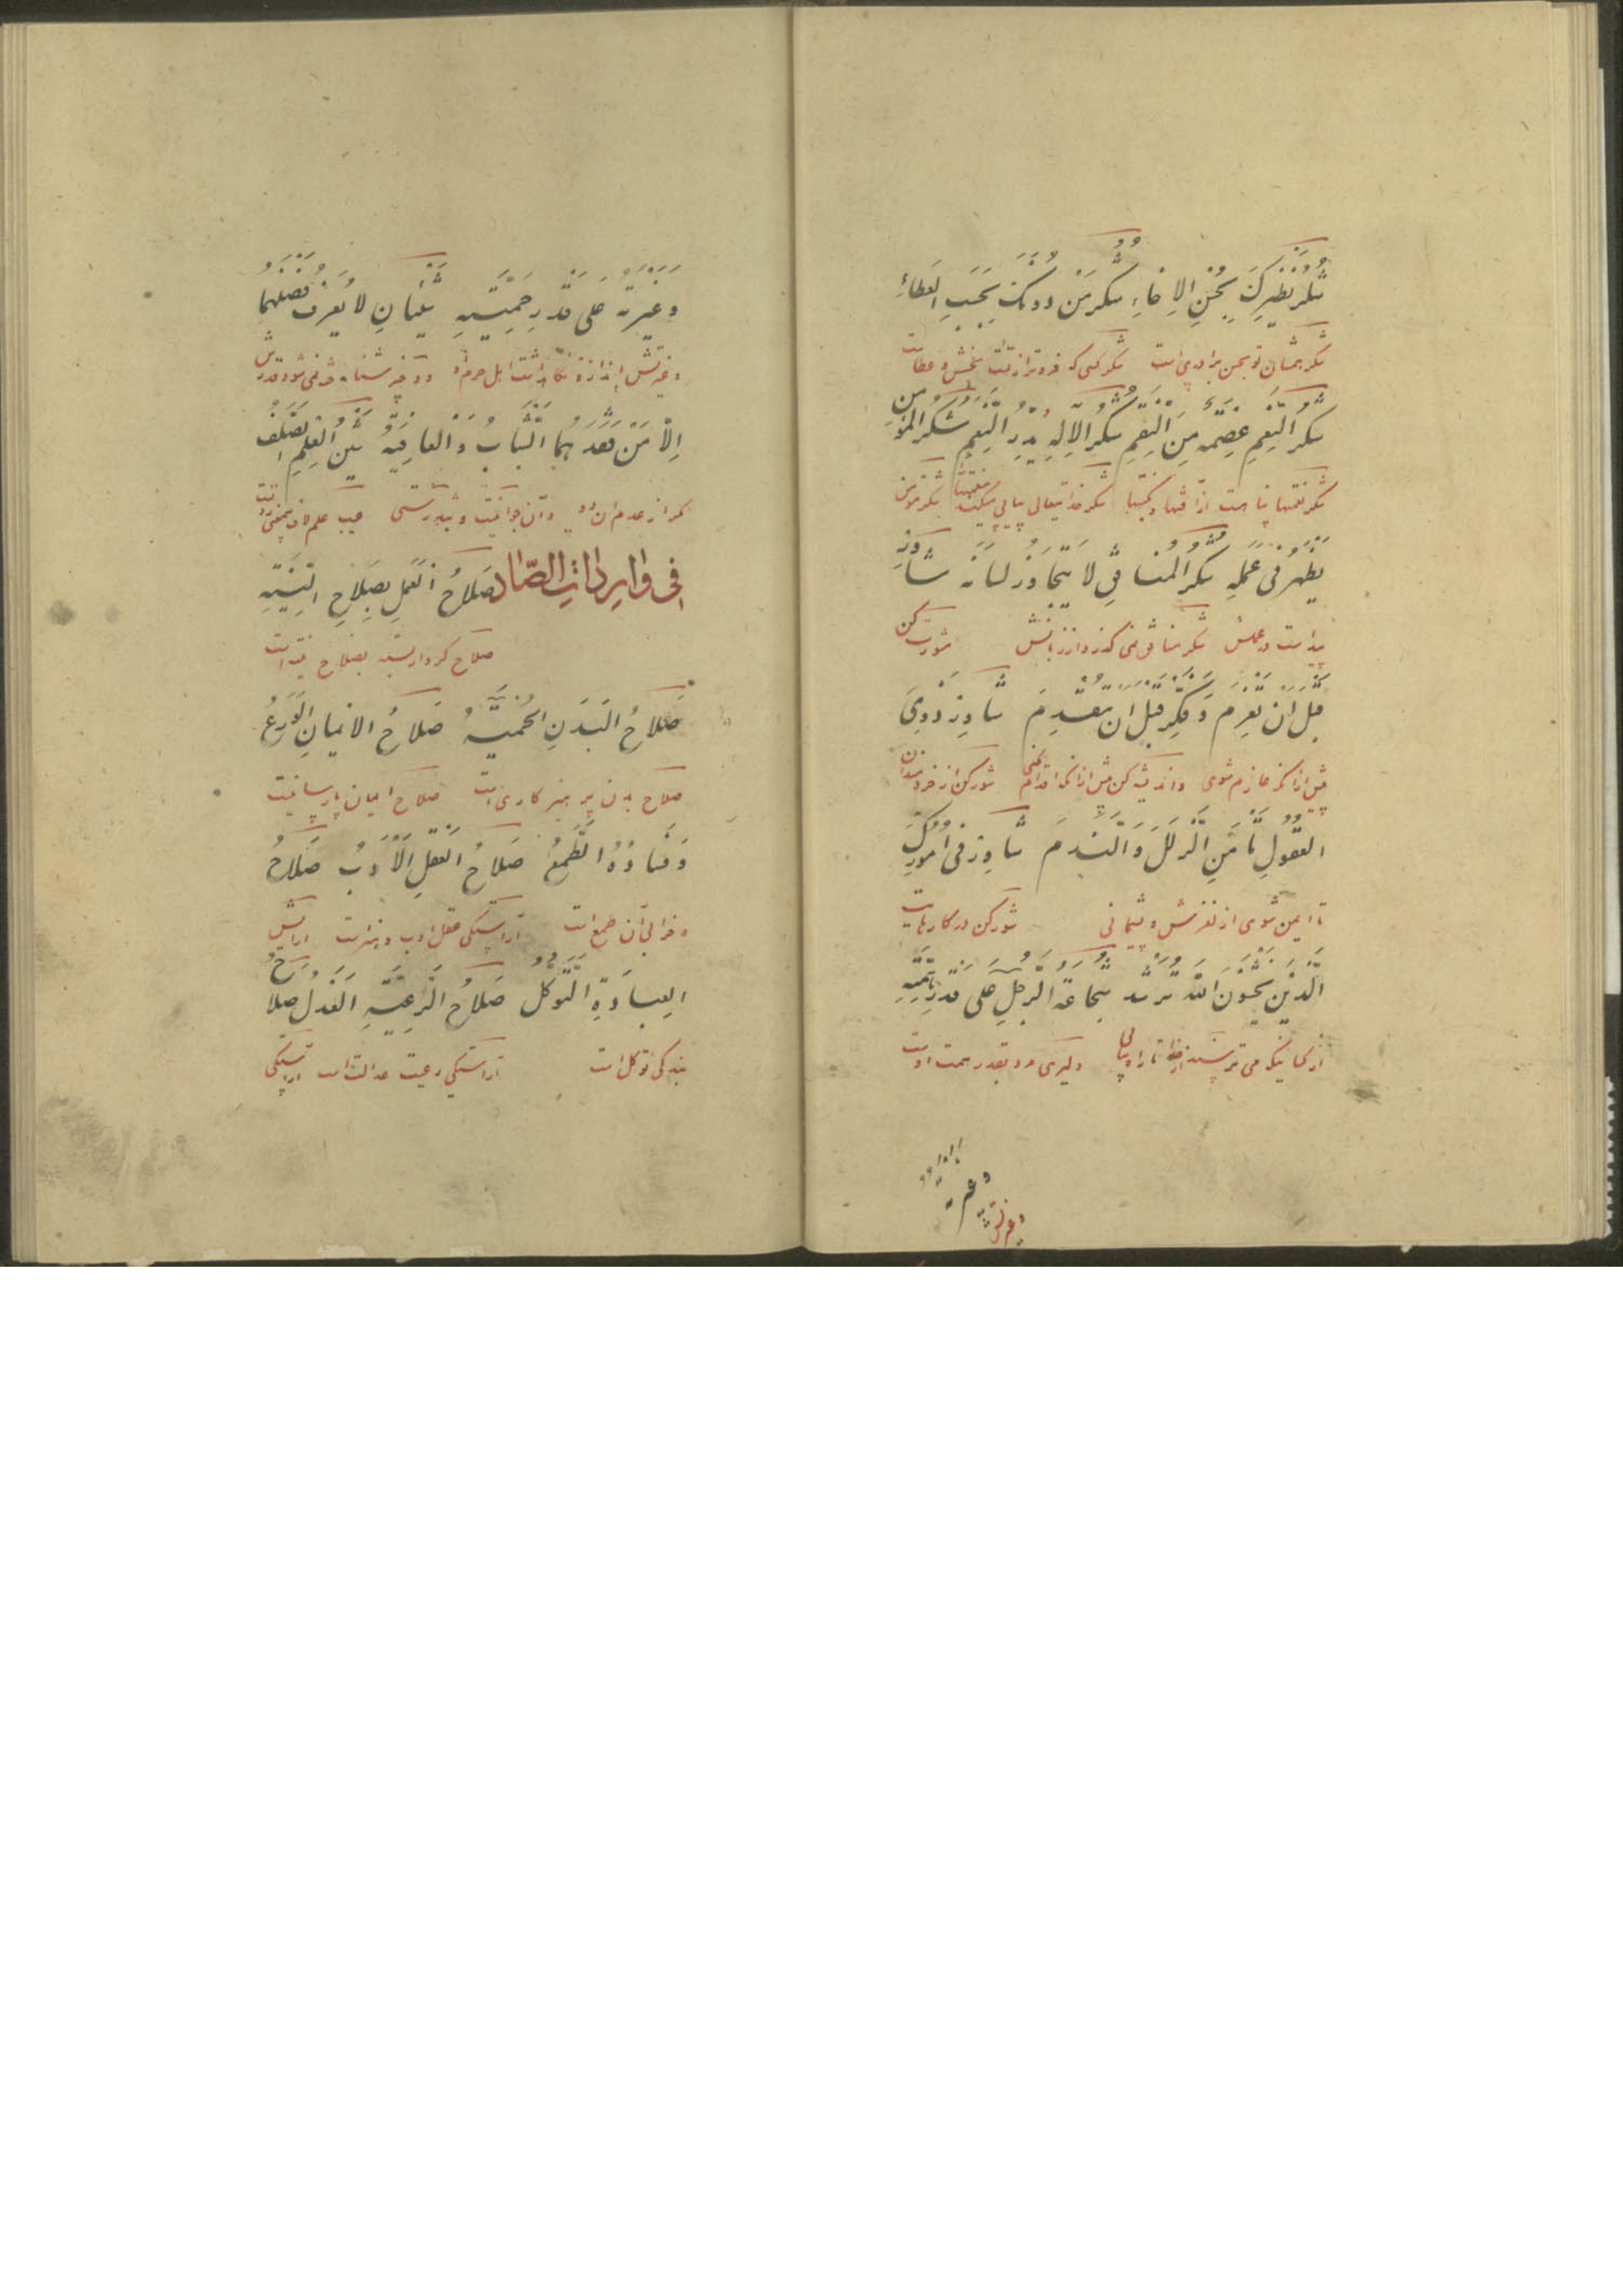 شُكْرُ نَظِيرِكَ بِحُسْنِ الاِخَاءِ شُكْرُ مَنْ دُونَكَ بِحَسَبِ العَطَاءِ
شكر همشان تو بحسن برادری است شكر كسی كه فروتر از تست بخشش و عطاست
شُكْرُ النِّعَمِ عِصْمَةٌ مِنَ النِّقَمِ شُكْرُ الاِلٰهِ يُدِرُّ النِّعَمَ شُكْرُ المُؤْمِنِ
شكر نعمتها پناهست از شكر خدایتعالی پیاپی میكند نعمتها شكر مؤمن
يَظْهَرُ فِى عَمَلِهِ شُكْرُ المُنَافِقِ لَا يَتَجَاوَزُ لِسَانَهُ شَاوِرْ
پیداست در عملش شكر منافق نمی گذرد از زبانش مشورت كن
قَبْلَ اَنْ تَعْزِمَ وَفَكِّرْ قَبْلَ اَنْ تُقْدِمَ شَاوِرْ ذَوِى
پیش از آنكه عازم شوی و اندیشه كن پیش از آنكه اقدام كنی شور كن از خردمندان
العُقُولِ تَأْمَنِ الزَّلَلَ وَالنَّدَمَ شَاوِرْ فِى اُمُورِكَ
تا ایمن شوی از لغزش و پشیمانی شور كن در كارهایت
الَّذِينَ يَخْشَوْنَ اللّٰهَ تَرْشُدْ شَجَاعَةُ الرَّجُلِ عَلَى قَدْرِ هِمَّتِهِ
از كسانیكه می ترسند از خدا تا راه یابی دلیری مرد بقدر همت اوست
وغیرته
وَغَيْرَتُهُ عَلَى قَدْرِ حَمِيَّتِهِ شَيْئَانِ لَا يُعْرَفُ فَضْلُهُمَا
و غیرتش باندازه نگاهداشت اهل حرم او دو چیز شناخته نمی شود قدرش
اِلَّا مَنْ فَقَدَهُمَا الشَّبَابُ وَالْعَافِيَةُ شَيْنُ الْعِلْمِ الصَّلَفُ
مگر از عدم آن دو و آن جوانیست و تندرستی عیب علم لاف
فى واردات الصّاد صَلَاحُ الْعَمَلِ بِصَلَاحِ النِّيَّةِ
صلاح كردار بصلاح نیت است
صَلَاحُ البَدَنِ الحِمْيَةُ صَلَاحُ الاِيمَانِ الوَرَعُ
صلاح بدن پرهیزكاری است صلاح ایمان پارسائیست
وَفَسَادُهُ الطَّمَعُ صَلَاحُ الْعَقْلِ الْاَدَبُ صَلَاحُ
و خرابی آن طمع است آراستگی عقل ادب و هنر است آرایش
العِبَادَةِ التَّوَكُّلُ صَلَاحُ الرَّعِيَّةِ الْعَدْلُ صَلَاحُ
بندگی توكل است آراستگی رعیت عدالت است آراستگی